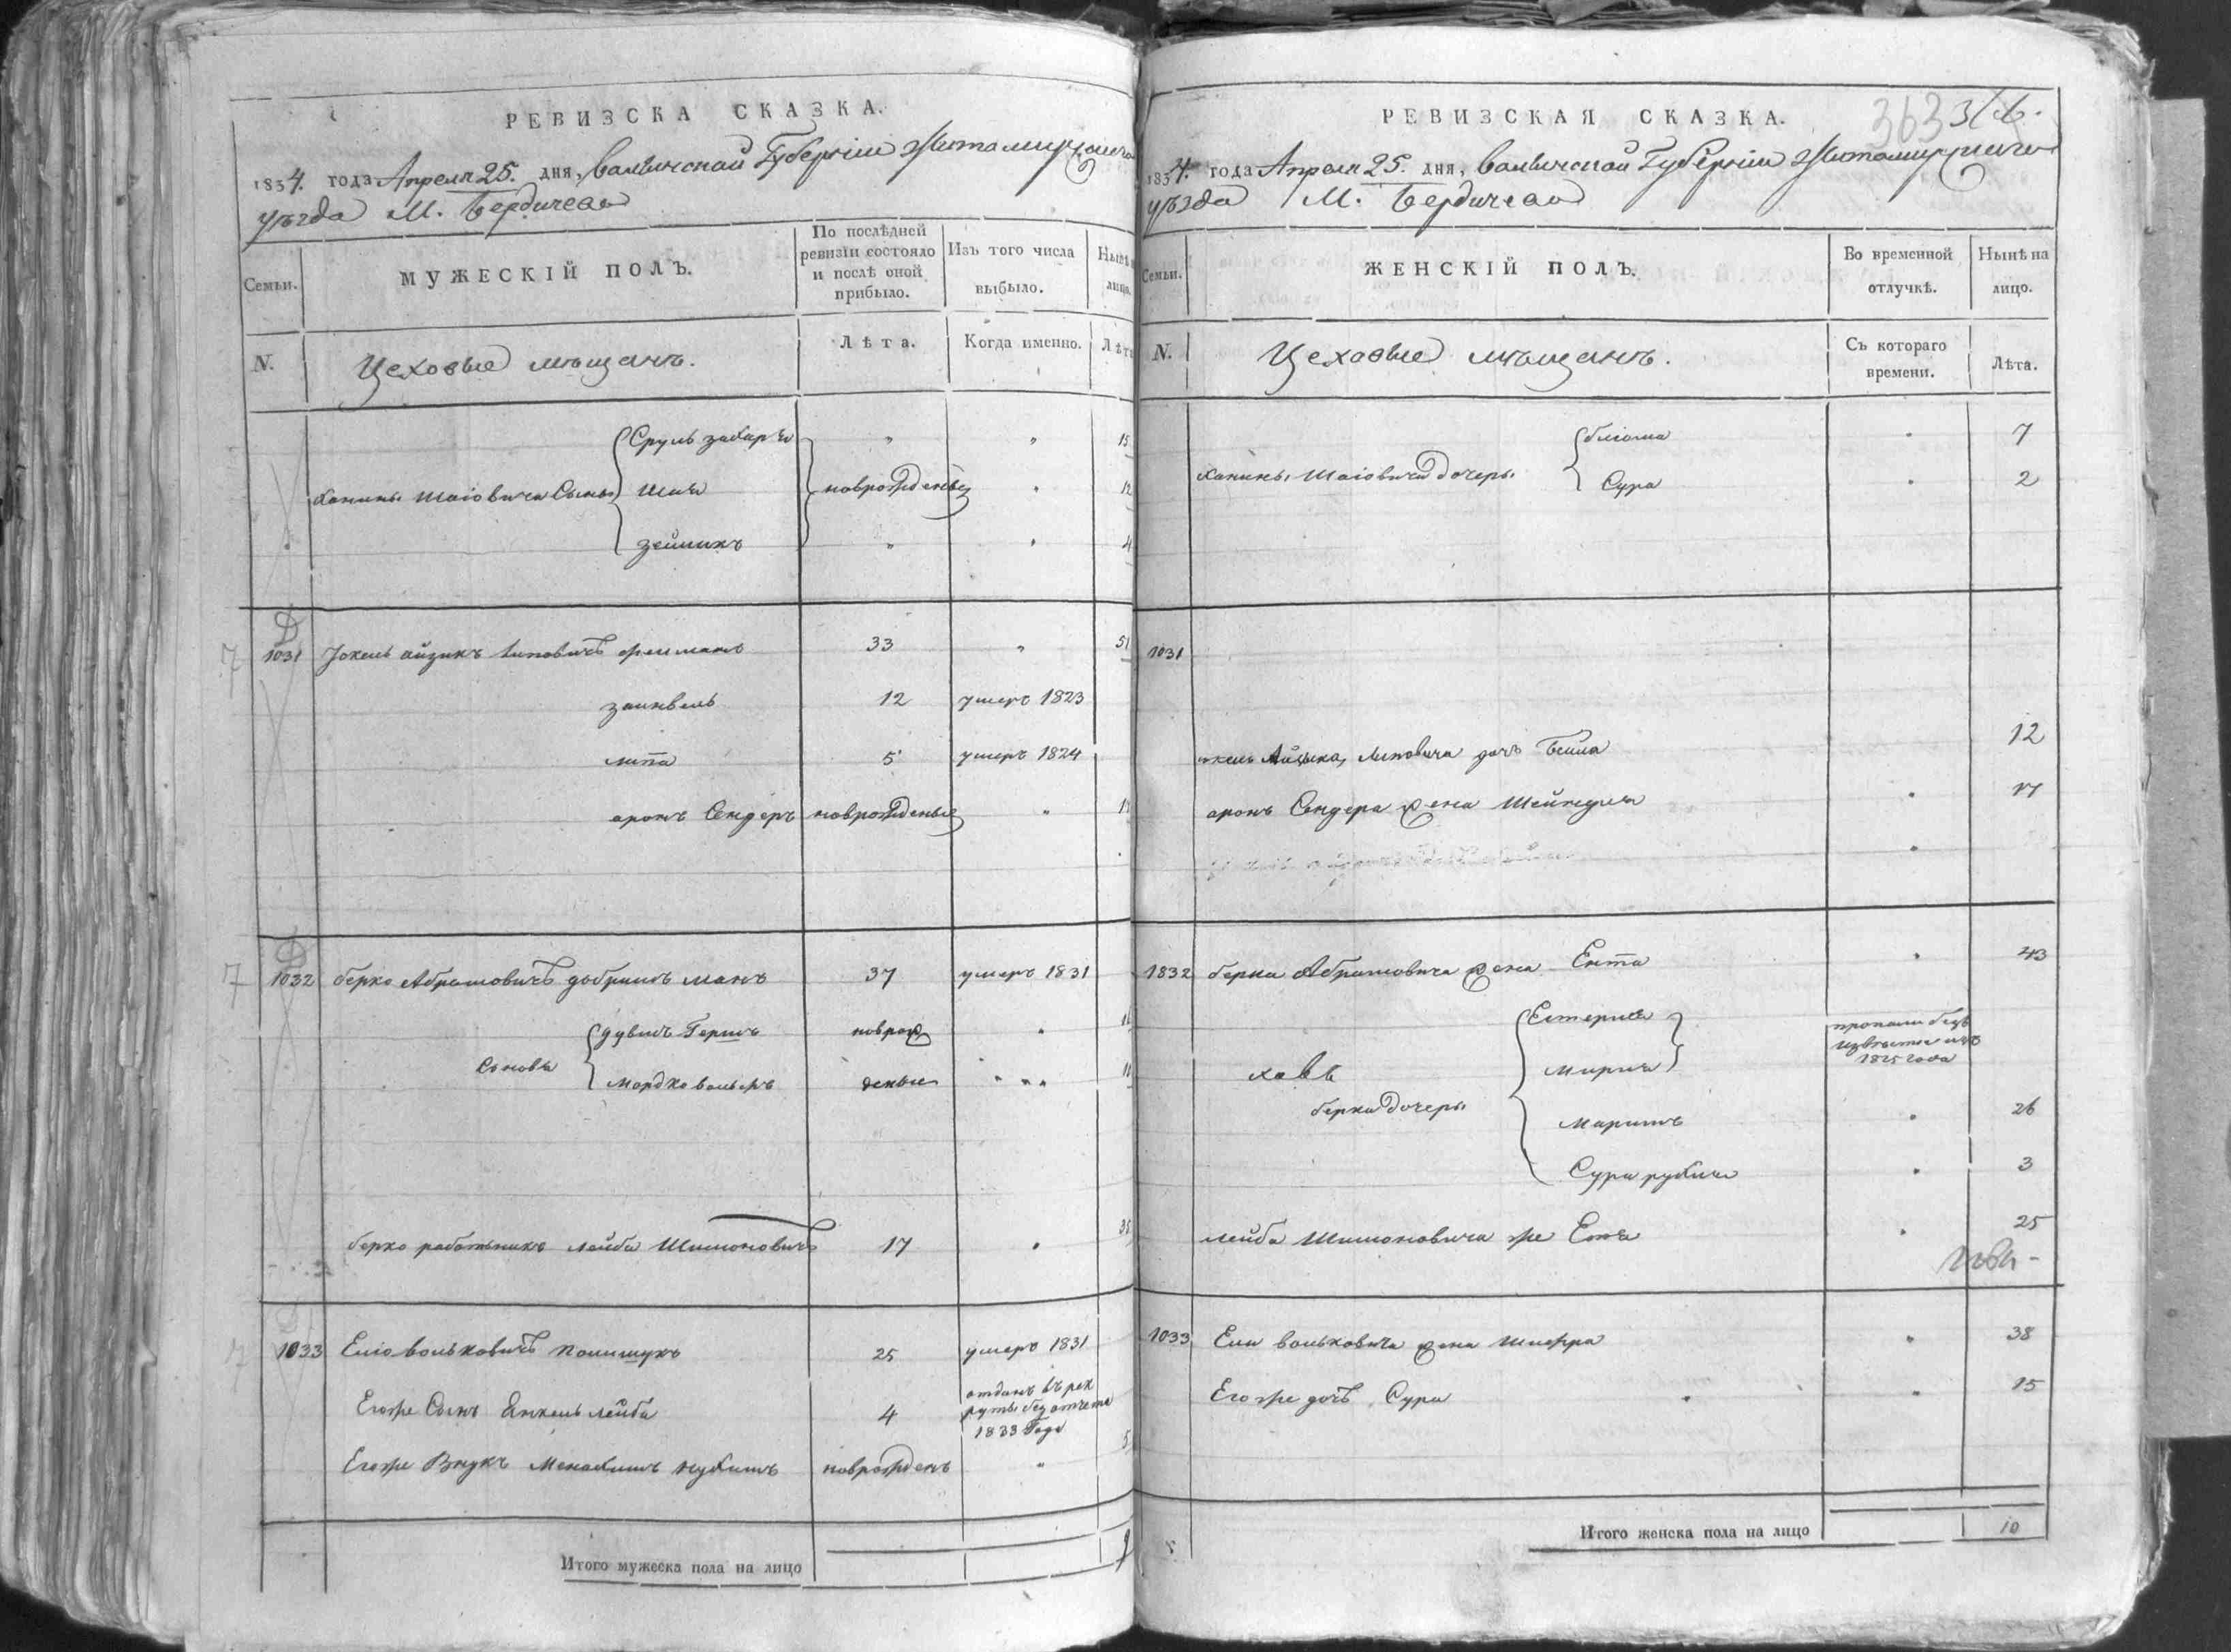 РЕВИЗСКА СКАЗКА.
1834. года Апреля 25. дня, Валынской Губернии Житомирскаго
уѣзда М. Бердичева
Семьи.
МУЖЕСКІЙ ПОЛЪ.
По послѣдней
ревизіи состояло
и послѣ оной
прибыло.
Изъ того числа
выбыло.
N.
Цеховые мещанъ.
Лѣта.
Когда именно.
Сруль
Ханины Шаіовича Сыны Шая новорожденые 12
Зейликъ 4
1031 Іокель айзикъ Липовичъ 33 51
Заинвель 12 умеръ 1823
липа 5 умеръ 1824
аронъ Сендеръ новрожденые
1032 берко Абрамовичъ 37 умеръ 1831
дувидъ Гершъ новрож
Сыновя
Мордко вольфъ деные
берко работникъ лейба Шимоновичъ 17 35
1033 Еліо вольковичъ Полищукъ 25 умеръ 1831
Егоже Сынъ Янкель лейба 4 отданъ въ рек
руты без отчета
1833 Года
Егоже Внукъ Менахимъ Нухимъ новрожденъ 5
Итого мужеска пола на лицо 9
РЕВИЗСКАЯ СКАЗКА.
363
1834. года Апреля 25. дня, Валынской Губернии Житомирскаго
уѣзда М. Бердичева
Семьи.
ЖЕНСКІЙ ПОЛЪ.
Во временной
отлучкѣ.
Нынѣ на
лицо.
N.
Цеховые мещанъ.
Съ котораго
времени.
Лѣта.
бліома 7
Ханины Шаіовича дочеры
Сура 2
1031
Айзыка, Липовича дочъ Беила 12
аронъ Сендера жена Шейндля 17
1832 берки Абрамовича жена Ента 43
Естерка
пропали безъ
извѣстно изъ
1825 года
Мирля
берки дочеры
Маримъ 26
Сура рухля 3
лейба Шимоновича же Еня 25
1033 Ели вольковича жена Шифра 38
Егоже дочъ Сура 15
Итого женска пола на лицо 10